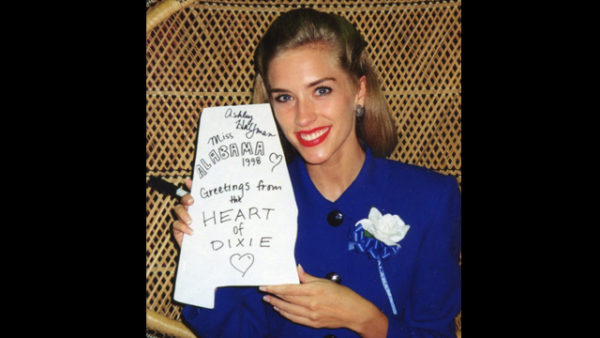 Ashley
Halfman
Miss
ALABAMA
1998
Greetings from
the
HEART
of
DIXIE